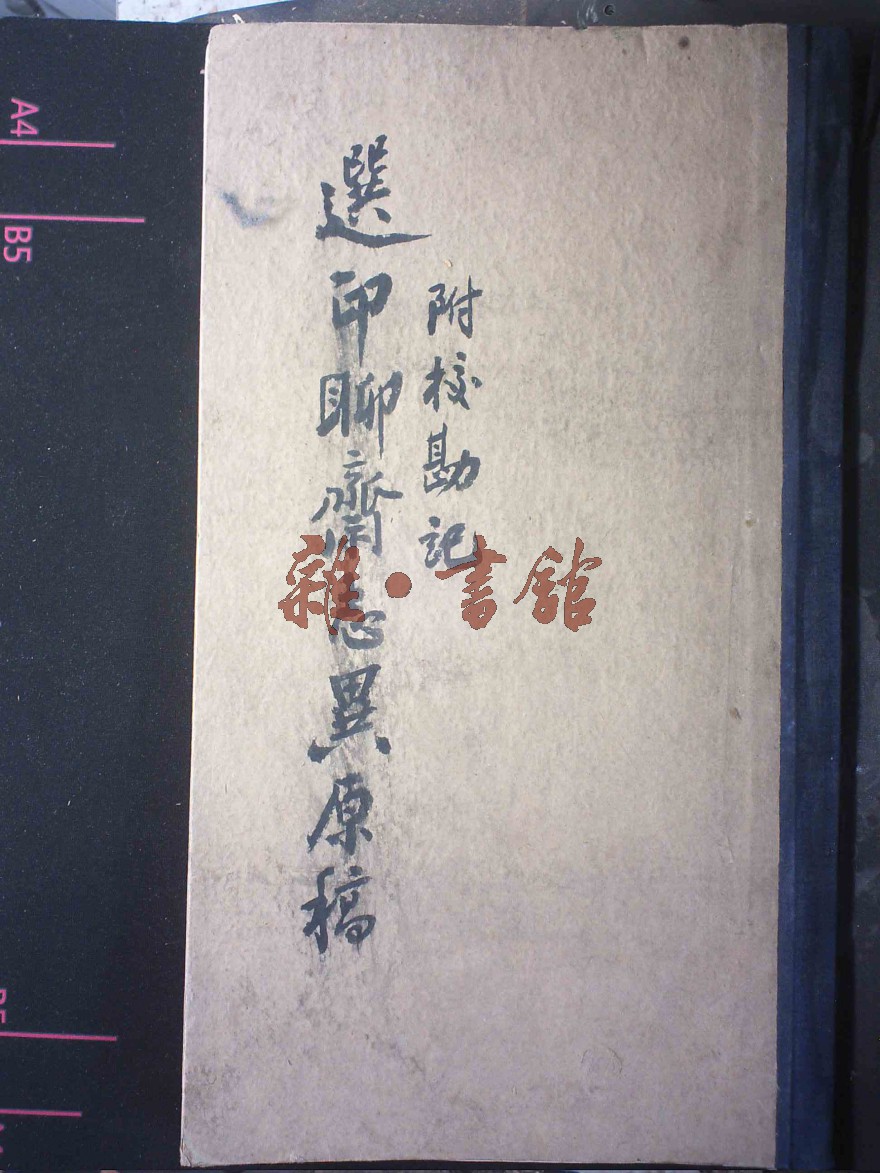 附校勘記
選印聊齋志異原稿
雜·書館
A4
B5